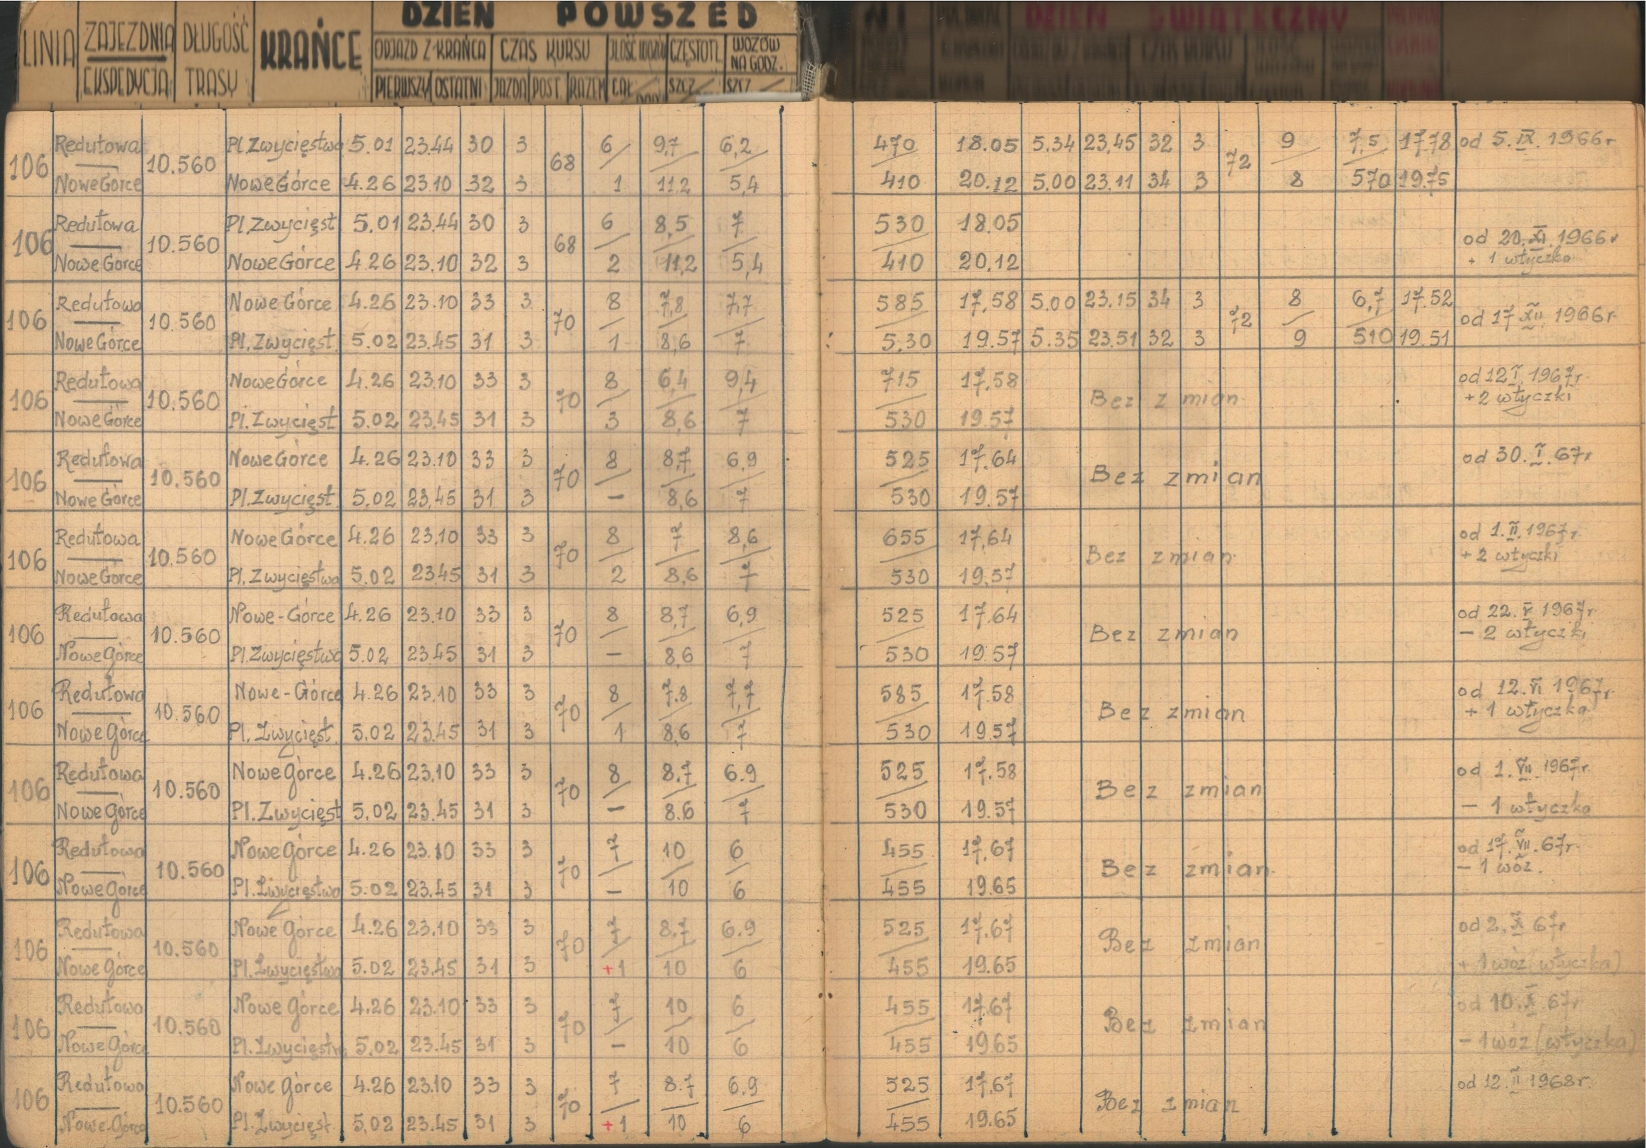 LINIA ZAJEZDNIA DŁUGOŚĆ KRAŃCE DZIEŃ POWSZED
EKSPEDYCJA TRASY ODJAZD Z KRAŃCA CZAS KURSU ILOŚĆ CZĘSTOTL. WOZÓW NA GODZ.
PIERWSZY OSTATNI JAZDA POST. RAZEM CAŁ SZCZ SZCZ
DZIEŃ ŚWIĄTECZNY
Redutowa Pl. Zwycięstwa 5.01 23.44 30 3 6 9,7 6,2 470 18.05 5.34 23,45 32 3 9 7,5 17.78 od 5.IX.1966r
106 10.560 68 72
Nowe Górce Nowe Górce 4.26 23.10 32 3 1 11,2 5,4 410 20.12 5.00 23.11 34 3 8 570 19.75
Redutowa Pl. Zwycięst 5.01 23.44 30 3 6 8,5 7 530 18.05
106 10.560 68 od 20.XI.1966r
Nowe Górce Nowe Górce 4.26 23.10 32 3 2 11,2 5,4 410 20,12 + 1 wtyczka
Redutowa Nowe Górce 4.26 23.10 33 3 8 7,8 7,7 585 17,58 5.00 23.15 34 3 8 6,7 17.52
106 10.560 70 72 od 17.XII 1966r
Nowe Górce Pl. Zwycięst. 5.02 23.45 31 3 1 8,6 7 5.30 19.57 5.35 23.51 32 3 9 510 19.51
Redutowa Nowe Górce 4.26 23.10 33 3 8 6,4 9,4 715 17,58 od 12 I. 1967r
106 10.560 70 Bez zmian + 2 wtyczki
Nowe Górce Pl. Zwycięst 5.02 23.45 31 3 3 8,6 7 530 19.57
Redutowa Nowe Górce 4.26 23.10 33 3 8 8,7 6,9 525 17.64 od 30.I.67r
106 10.560 70 Bez zmian
Nowe Górce Pl. Zwycięst. 5.02 23,45 31 3 – 8,6 7 530 19.57
Redutowa Nowe Górce 4.26 23,10 33 3 8 7 8,6 655 17,64 od 1.II.1967r
106 10.560 70 Bez zmian + 2 wtyczki
Nowe Górce Pl. Zwycięstwa 5.02 23.45 31 3 2 8,6 7 530 19.57
Redutowa Nowe-Górce 4.26 23.10 33 3 8 8,7 6,9 525 17.64 od 22.V 1967r
106 10.560 70 Bez zmian – 2 wtyczki
Nowe Górce Pl. Zwycięstwa 5.02 23.45 31 3 – 8,6 7 530 19.57
Redutowa Nowe-Górce 4.26 23.10 33 3 8 7.8 7,7 585 17.58 od 12.VI 1967r
106 10.560 70 Bez zmian + 1 wtyczka
Nowe Górce Pl. Zwycięst. 5.02 23.45 31 3 1 8,6 7 530 19.57
Redutowa Nowe Górce 4.26 23.10 33 3 8 8.7 6.9 525 17.58 od 1.VII.1967r
106 10.560 70 Bez zmian
Nowe Górce Pl. Zwycięst 5,02 23.45 31 3 – 8.6 7 530 19.57 – 1 wtyczka
Redutowa Nowe Górce 4.26 23.10 33 3 7 10 6 455 17,67 od 17.VII.67r
106 10.560 70 Bez zmian – 1 wóz.
Nowe Górce Pl. Zwycięstwa 5.02 23.45 31 3 – 10 6 455 19.65
Redutowa Nowe Górce 4.26 23.10 33 3 7 8,7 6.9 525 17.67 od 2.X 67r
106 10.560 70 Bez zmian
Nowe Górce Pl. Zwycięstwa 5.02 23.45 31 3 +1 10 6 455 19.65 + 1 wóz (wtyczka)
Redutowa Nowe Górce 4.26 23.10 33 3 7 10 6 455 17.67 od 10.X.67r
106 10.560 70 Bez zmian
Nowe Górce Pl. Zwycięstwa 5,02 23.45 31 3 – 10 6 455 19.65 – 1 wóz (wtyczka)
Redutowa Nowe Górce 4.26 23.10 33 3 7 8.7 6.9 525 17.67 od 12.II 1968r.
106 10.560 70 Bez zmian
Nowe Górce Pl. Zwycięst. 5,02 23.45 31 3 +1 10 6 455 19.65